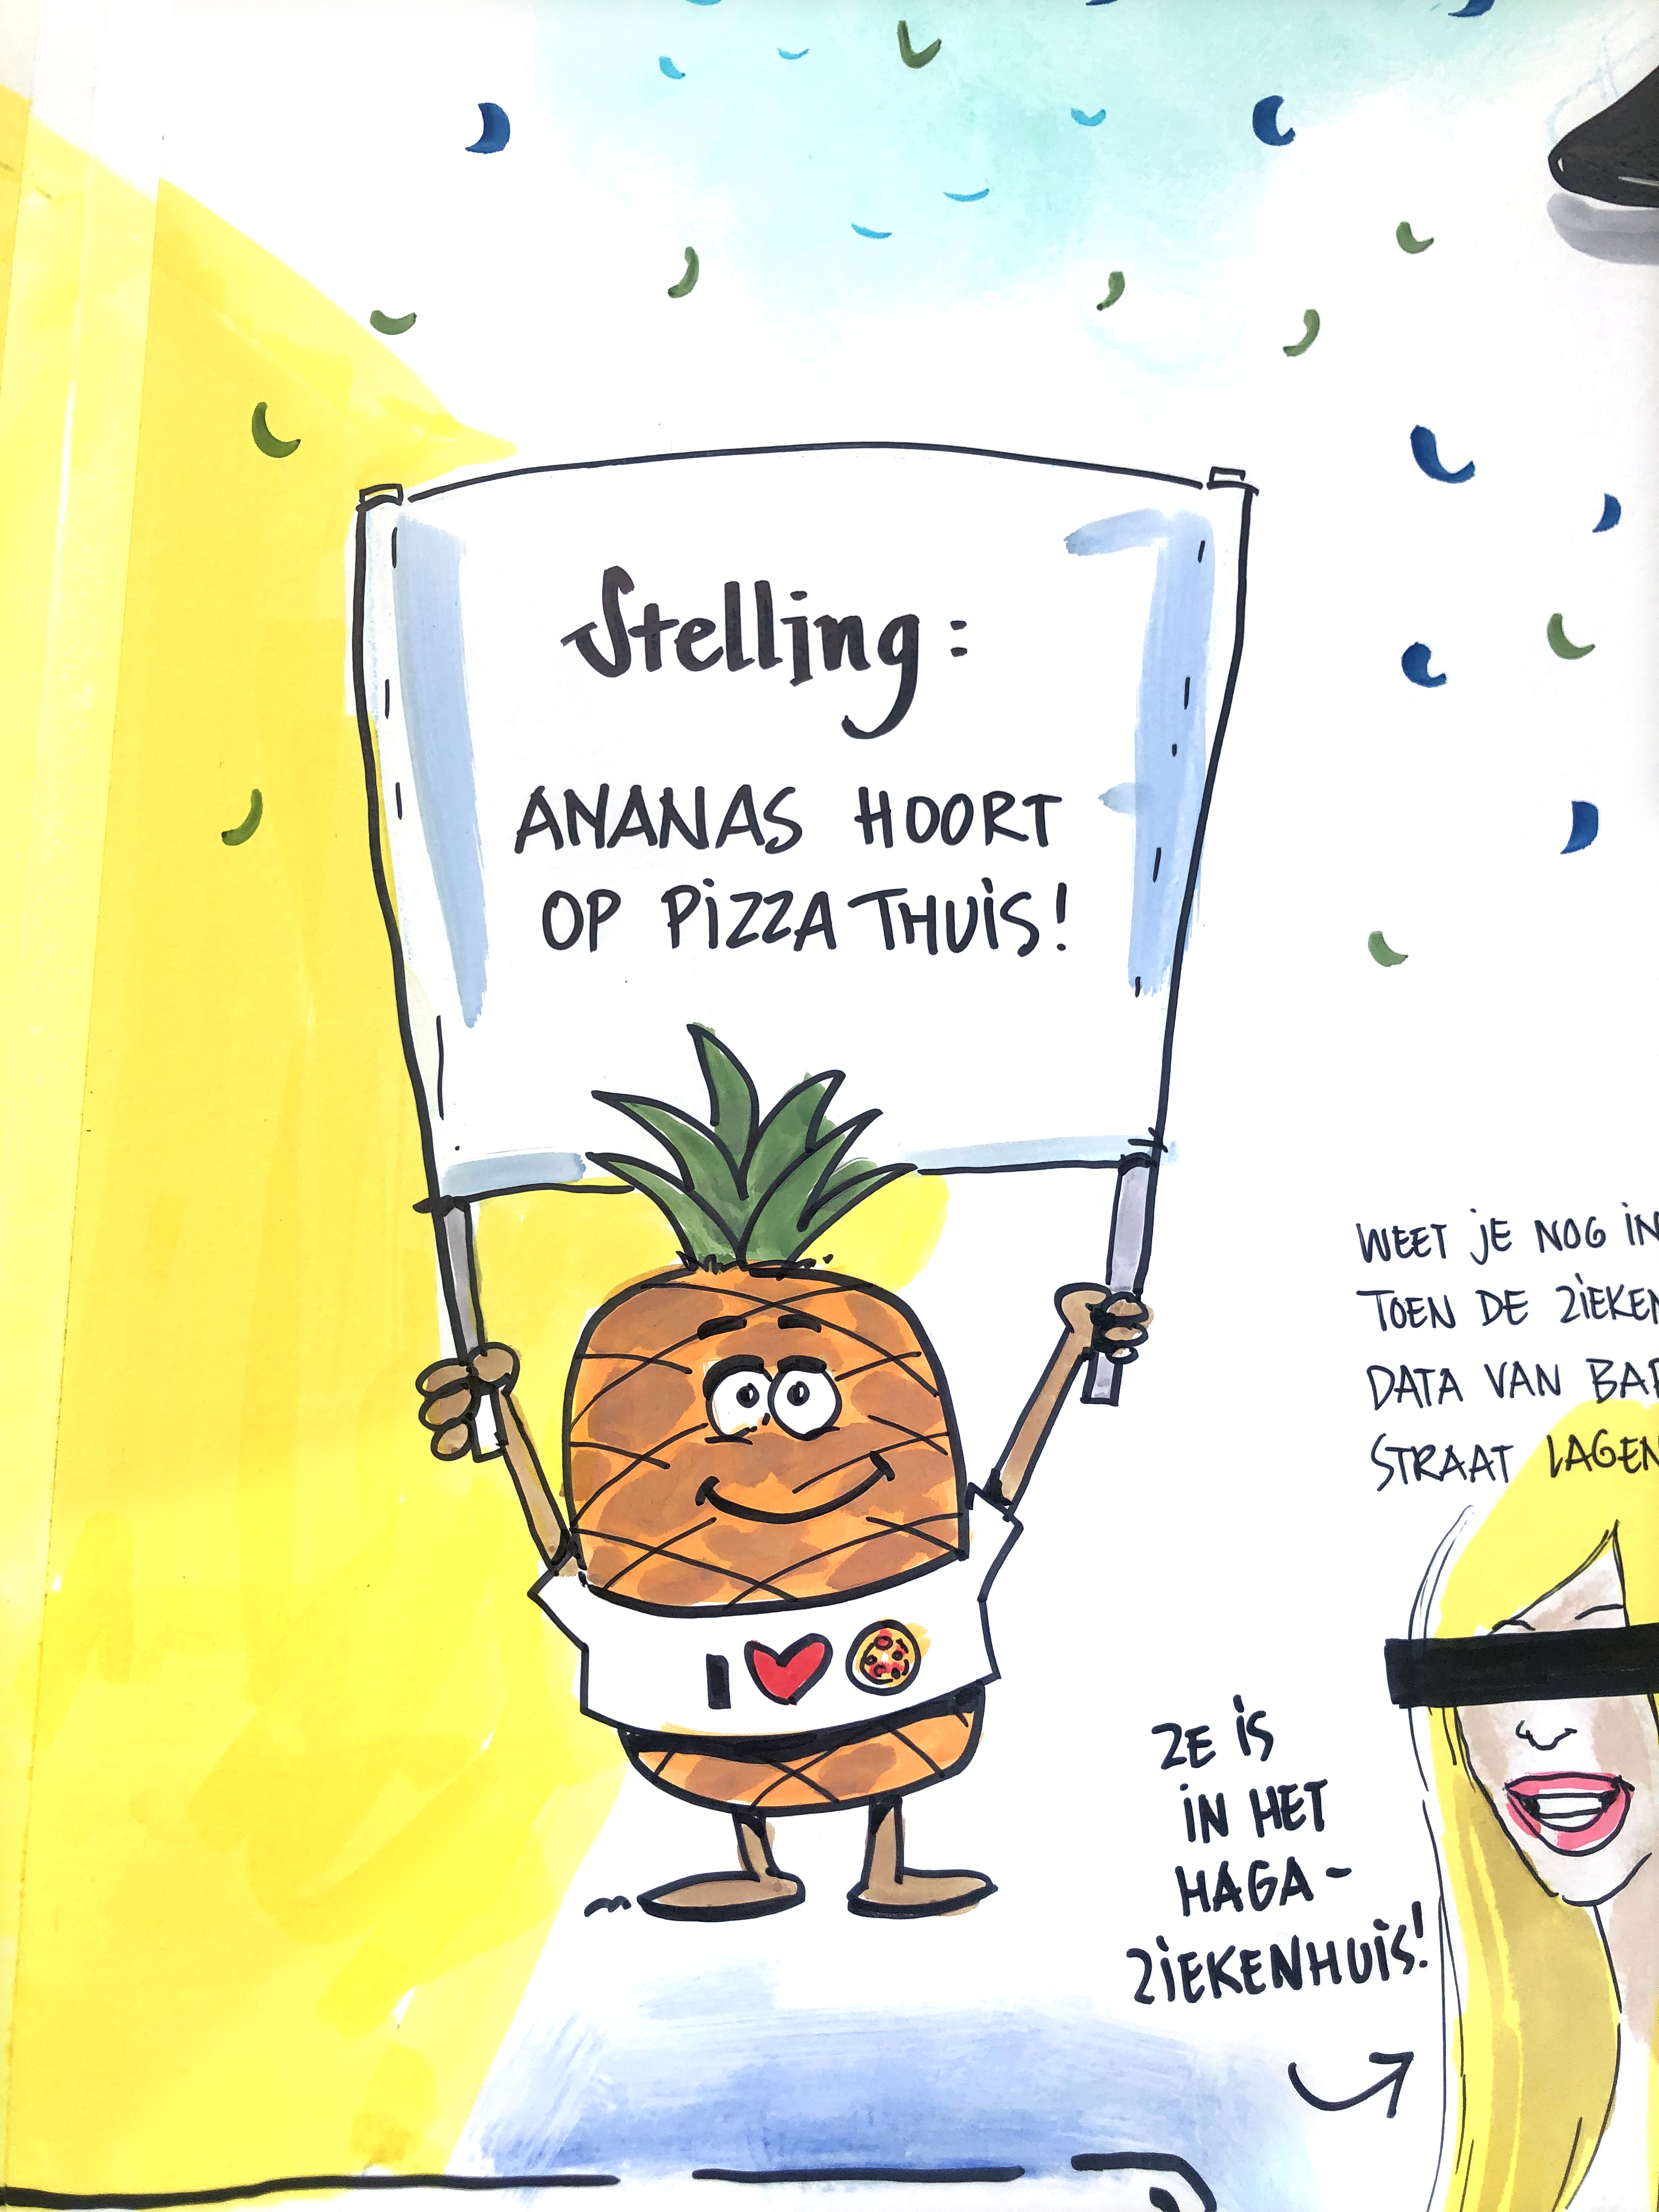 Stelling:
ANANAS HOORT
OP PIZZA THUIS!
I
WEET JE NOG IN
TOEN DE
DATA VAN
STRAAT LAGEN
ZE IS
IN HET
HAGA-
ZIEKENHUIS!